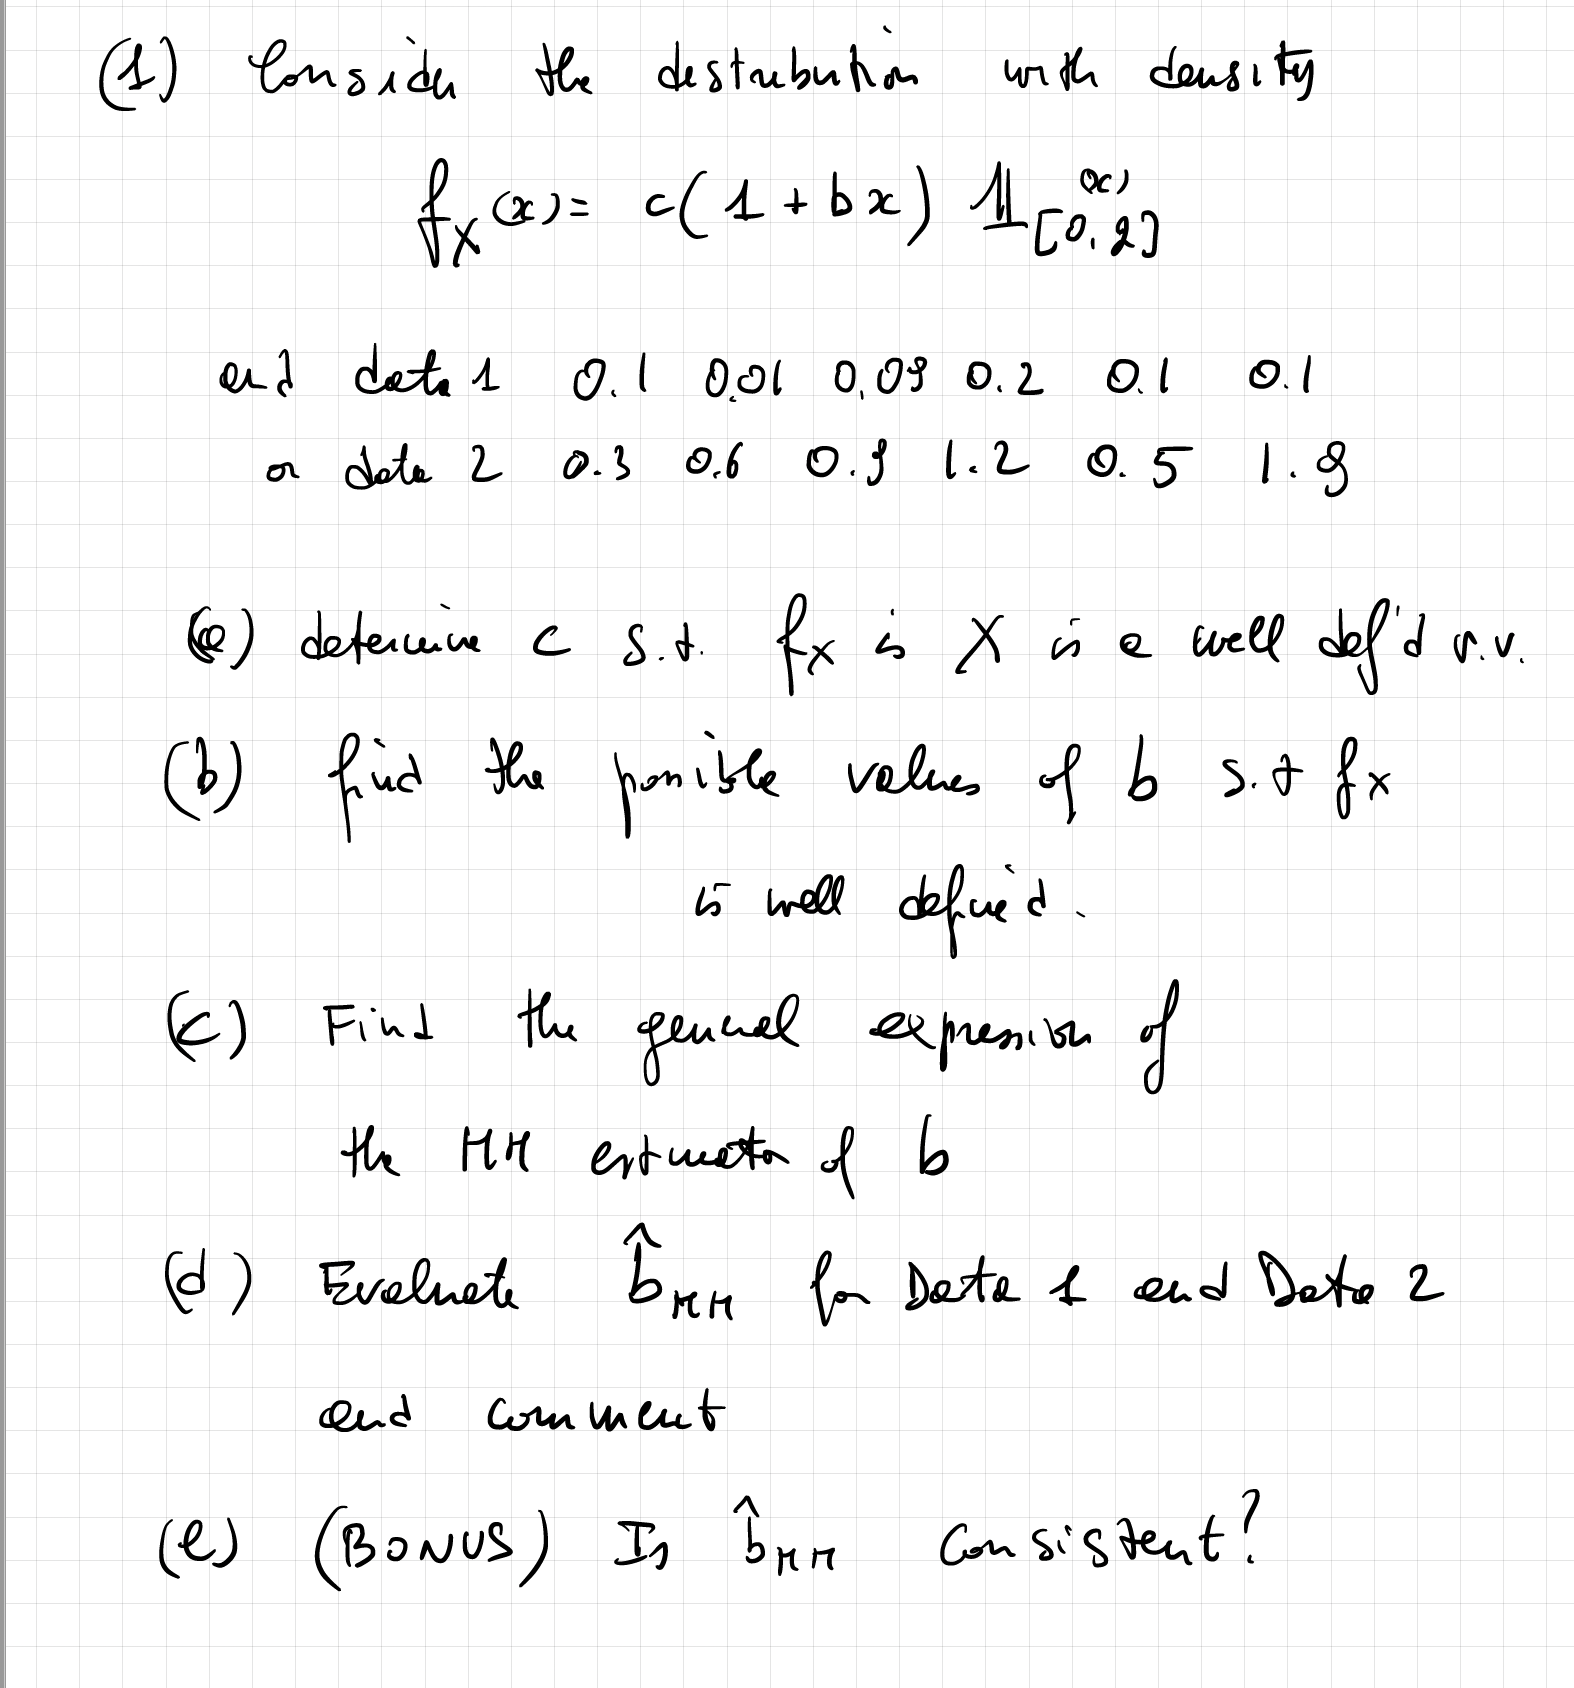 (1) Consider the distribution with density
f_X(x) = c(1 + bx) 𝟙_[0,2](x)
and data 1 0.1 0.01 0,09 0.2 0.1 0.1
or data 2 0.3 0.6 0.9 1.2 0.5 1.9
(a) determine c s.t. f_X is X is a well def'd r.v.
(b) find the possible values of b s.t f_X
is well defined.
(c) Find the general expression of
the MM estimator of b
(d) Evaluate b̂_MM for Data 1 and Data 2
and comment
(e) (BONUS) Is b̂_MM consistent?